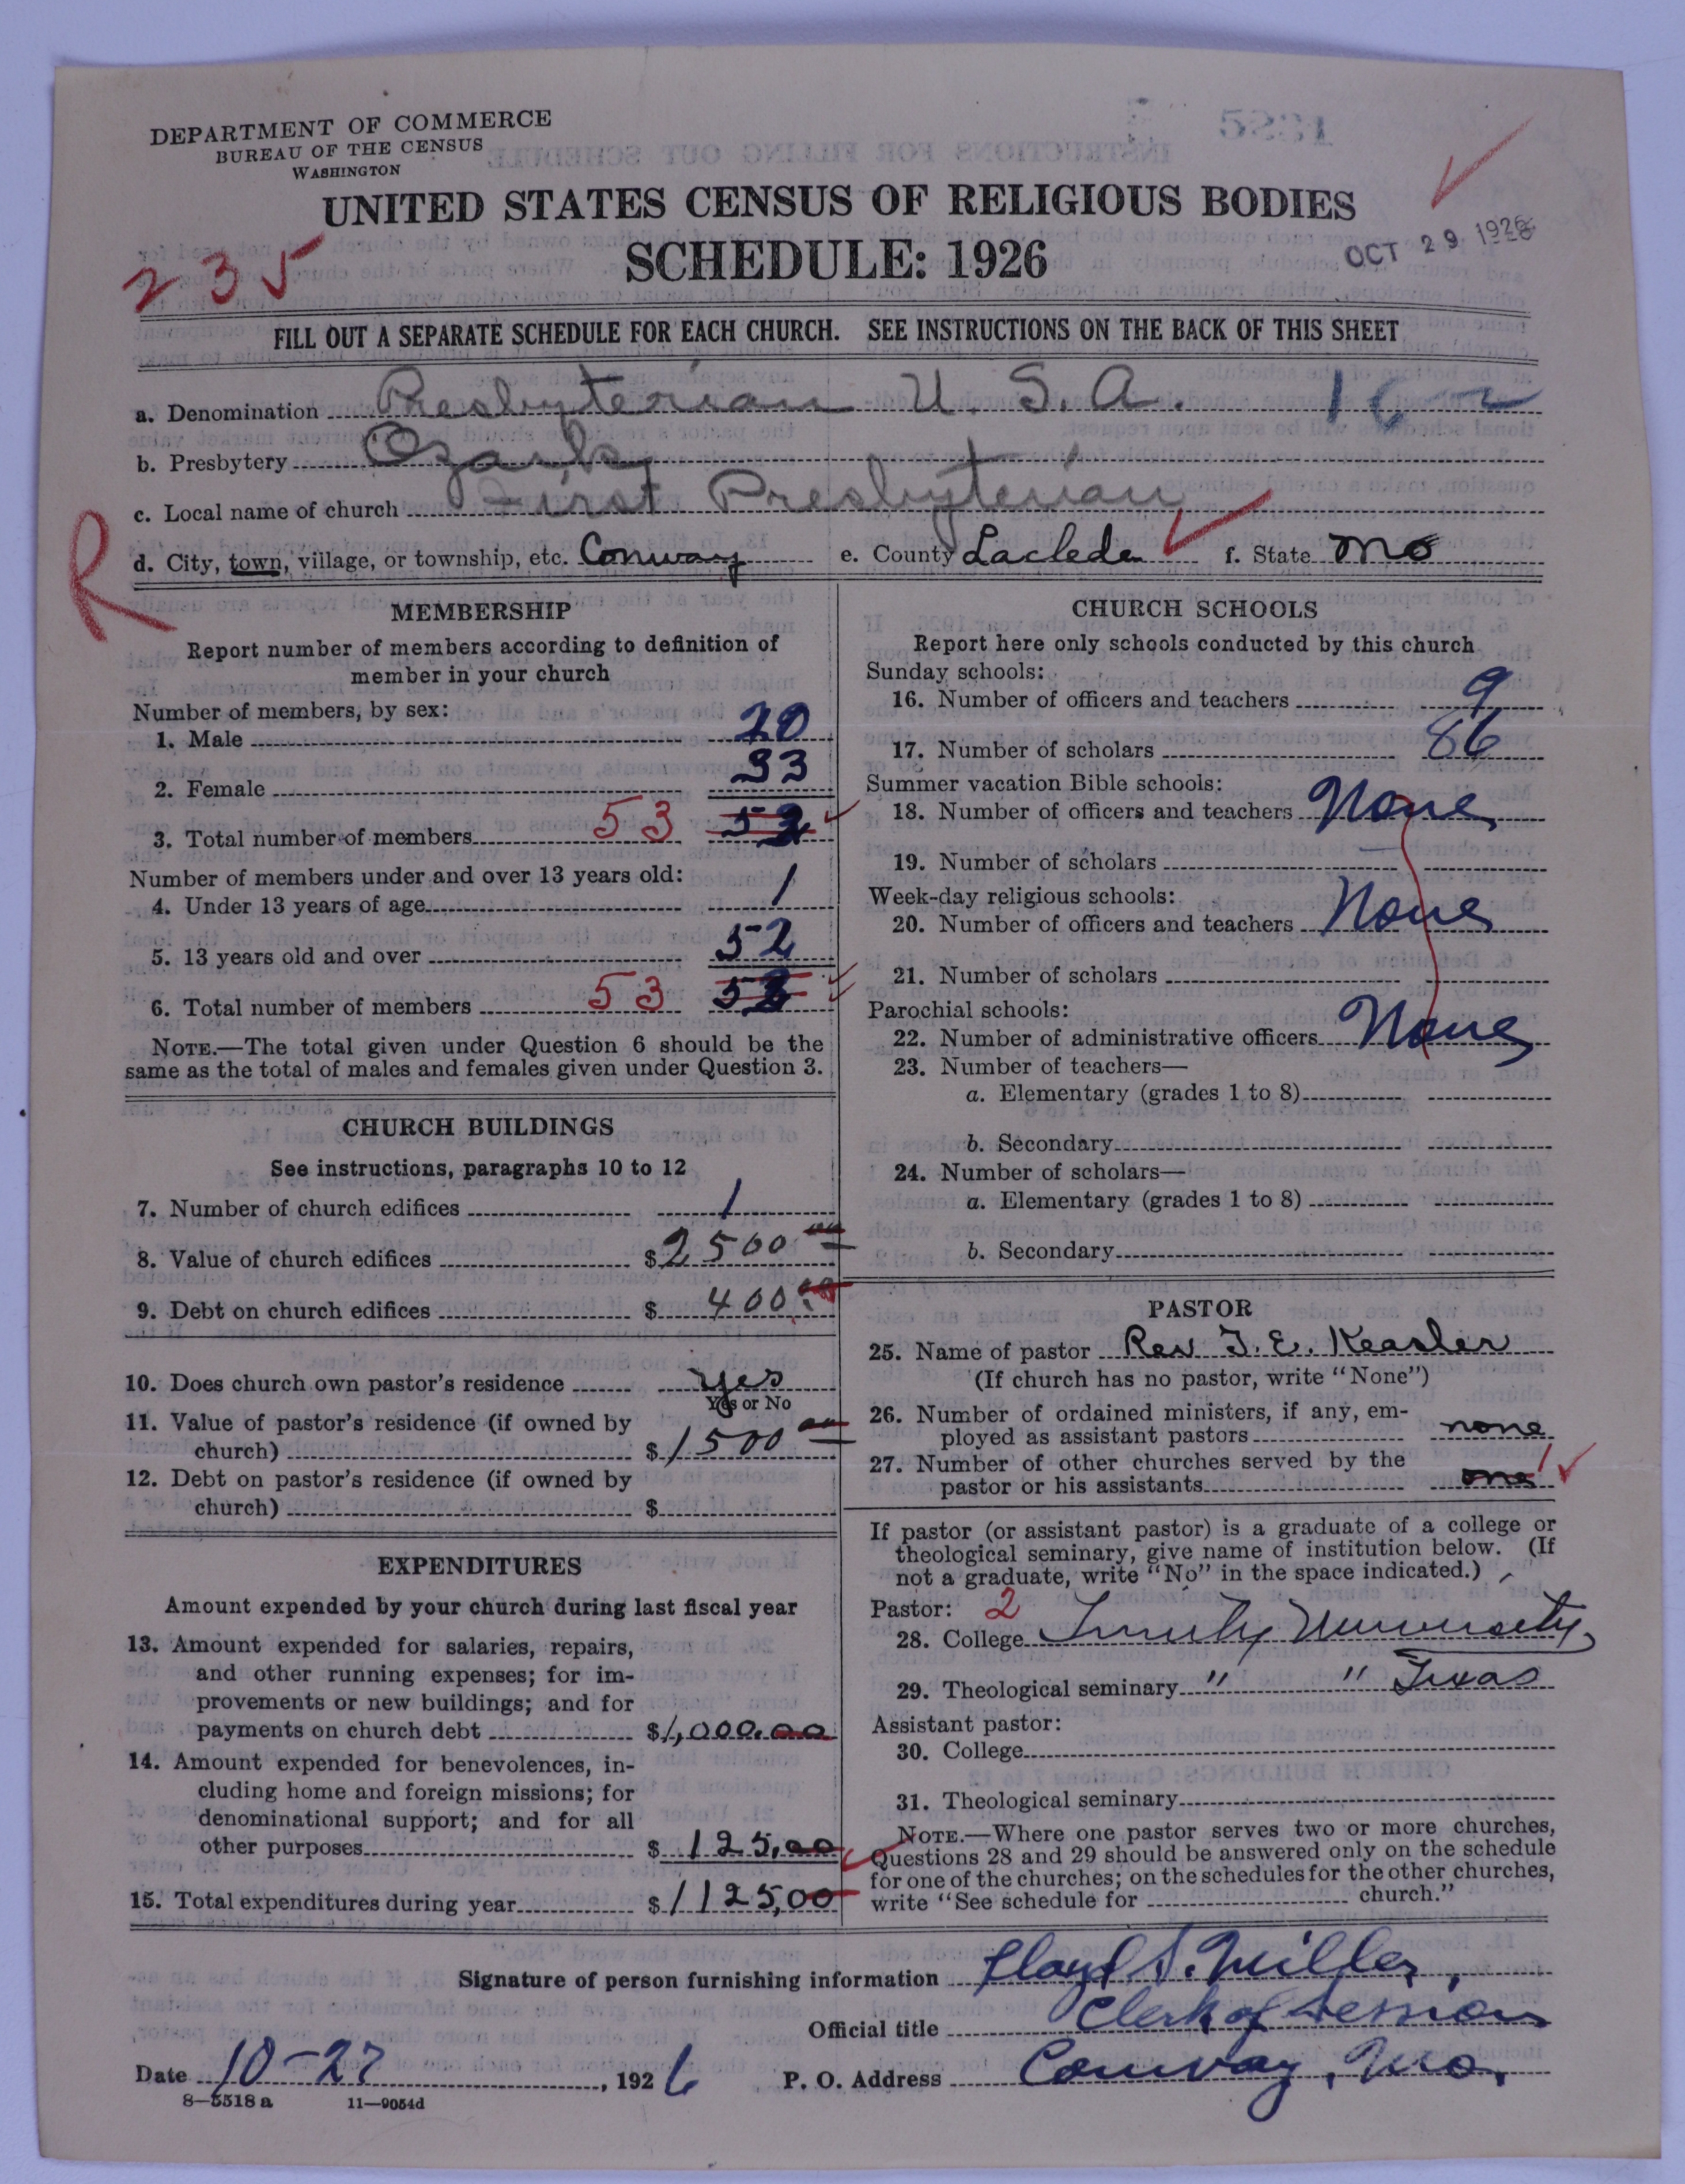 DEPARTMENT OF COMMERCE
BUREAU OF THE CENSUS
WASHINGTON
UNITED STATES CENSUS OF RELIGIOUS BODIES
SCHEDULE: 1926
OCT 29 1926
235
FILL OUT A SEPARATE SCHEDULE FOR EACH CHURCH. SEE INSTRUCTIONS ON THE BACK OF THIS SHEET
a. Denomination Presbyterian U. S. A.
b. Presbytery Ozark
c. Local name of church First Presbyterian
R
d. City, town, village, or township, etc. Conway e. County Laclede f. State Mo
MEMBERSHIP
Report number of members according to definition of
member in your church
Number of members, by sex:
1. Male 20
2. Female 33
3. Total number of members 53 53
Number of members under and over 13 years old:
4. Under 13 years of age 1
5. 13 years old and over 52
6. Total number of members 53 53
NOTE.—The total given under Question 6 should be the
same as the total of males and females given under Question 3.
CHURCH BUILDINGS
See instructions, paragraphs 10 to 12
7. Number of church edifices 1
8. Value of church edifices $2500 00
9. Debt on church edifices $ 400.00
10. Does church own pastor's residence yes
Yes or No
11. Value of pastor's residence (if owned by
church) $1500 00
12. Debt on pastor's residence (if owned by
church) $
EXPENDITURES
Amount expended by your church during last fiscal year
13. Amount expended for salaries, repairs,
and other running expenses; for im-
provements or new buildings; and for
payments on church debt $1,000.00
14. Amount expended for benevolences, in-
cluding home and foreign missions; for
denominational support; and for all
other purposes $ 125.00
15. Total expenditures during year $1125,00
CHURCH SCHOOLS
Report here only schools conducted by this church
Sunday schools:
16. Number of officers and teachers 9
17. Number of scholars 86
Summer vacation Bible schools:
18. Number of officers and teachers None
19. Number of scholars
Week-day religious schools:
20. Number of officers and teachers None
21. Number of scholars
Parochial schools:
22. Number of administrative officers None
23. Number of teachers—
a. Elementary (grades 1 to 8)
b. Secondary
24. Number of scholars—
a. Elementary (grades 1 to 8)
b. Secondary
PASTOR
25. Name of pastor Rev J. E. Keasler
(If church has no pastor, write "None")
26. Number of ordained ministers, if any, em-
ployed as assistant pastors none
27. Number of other churches served by the
pastor or his assistants one 1
If pastor (or assistant pastor) is a graduate of a college or
theological seminary, give name of institution below. (If
not a graduate, write "No" in the space indicated.)
Pastor: 2
28. College Trinity University,
29. Theological seminary " " Texas
Assistant pastor:
30. College
31. Theological seminary
NOTE.—Where one pastor serves two or more churches,
Questions 28 and 29 should be answered only on the schedule
for one of the churches; on the schedules for the other churches,
write "See schedule for church."
Signature of person furnishing information Floyd S. Miller,
Official title Clerk of Session
Date 10-27, 1926 P. O. Address Conway, Mo.
8—5518a 11—9054d